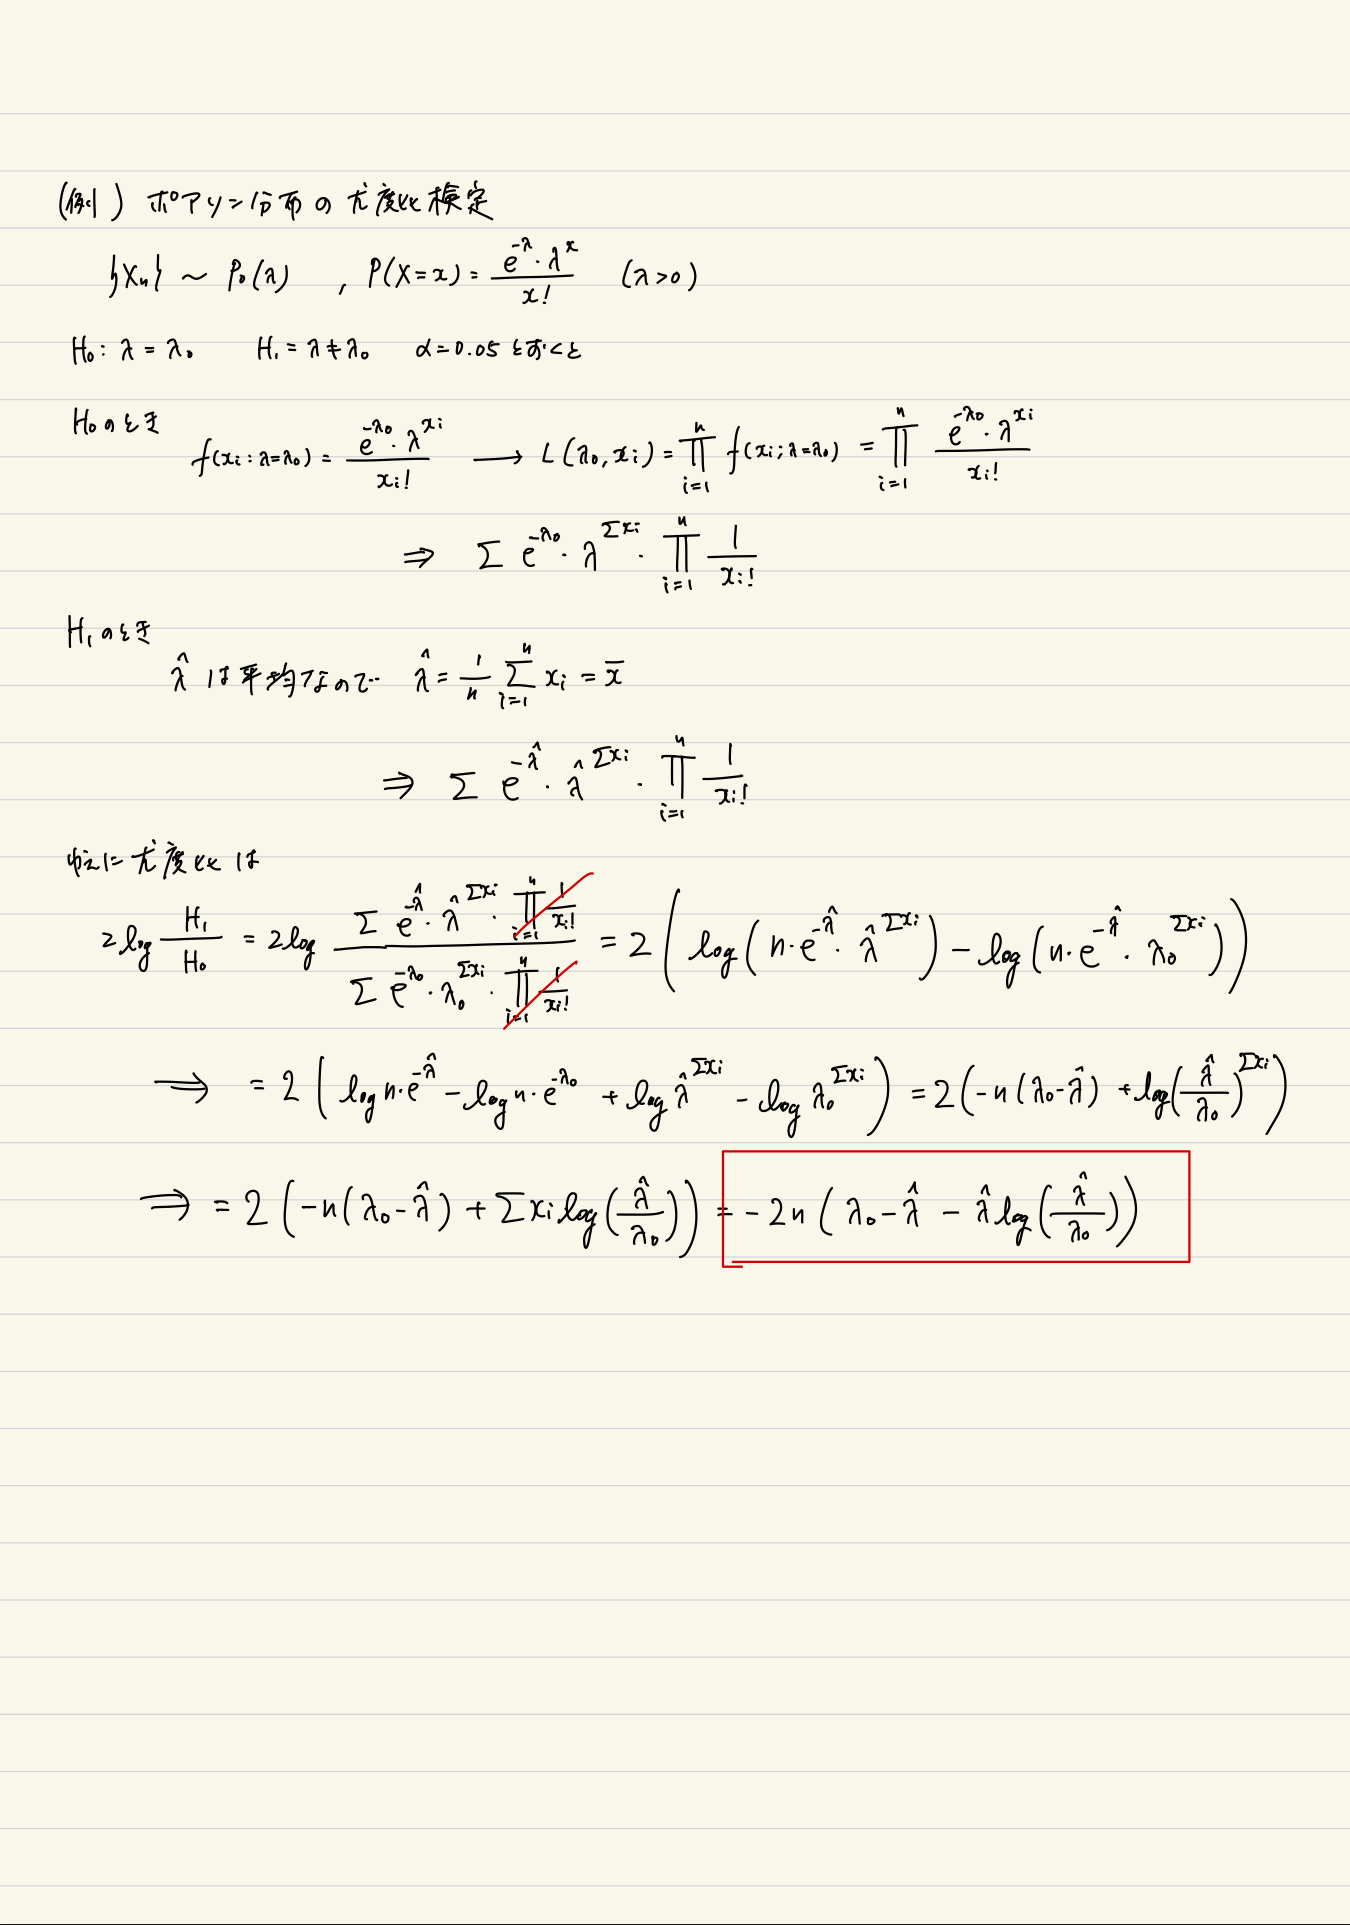 (例) ポアソン分布の尤度比検定
{Xn} ~ Po(λ) , P(X=x) = e^{-λ}・λ^x / x! (λ>0)
H₀: λ = λ₀ H₁ = λ ≠ λ₀ α=0.05 とおくと
H₀のとき
f(xi : λ=λ₀) = e^{-λ₀}・λ^{xi} / xi! → L(λ₀, xi) = ∏_{i=1}^{n} f(xi ; λ=λ₀) = ∏_{i=1}^{n} e^{-λ₀}・λ^{xi} / xi!
⇒ Σ e^{-λ₀}・λ^{Σxi}・∏_{i=1}^{n} 1/xi!
H₁のとき
λ̂ は平均なので λ̂ = 1/n Σ_{i=1}^{n} xi = x̄
⇒ Σ e^{-λ̂}・λ̂^{Σxi}・∏_{i=1}^{n} 1/xi!
ゆえに尤度比は
2log H₁/H₀ = 2log (Σ e^{-λ̂}・λ̂^{Σxi}・∏_{i=1}^{n} 1/xi!) / (Σ e^{-λ₀}・λ₀^{Σxi}・∏_{i=1}^{n} 1/xi!) = 2 ( log ( n・e^{-λ̂}・λ̂^{Σxi} ) - log ( n・e^{-λ̂}・λ₀^{Σxi} ) )
⇒ = 2 ( log n・e^{-λ̂} - log n・e^{-λ₀} + log λ̂^{Σxi} - log λ₀^{Σxi} ) = 2 ( -n (λ₀-λ̂) + log(λ̂/λ₀)^{Σxi} )
⇒ = 2 ( -n(λ₀-λ̂) + Σxi log(λ̂/λ₀) ) = -2n ( λ₀-λ̂ - λ̂ log(λ̂/λ₀) )